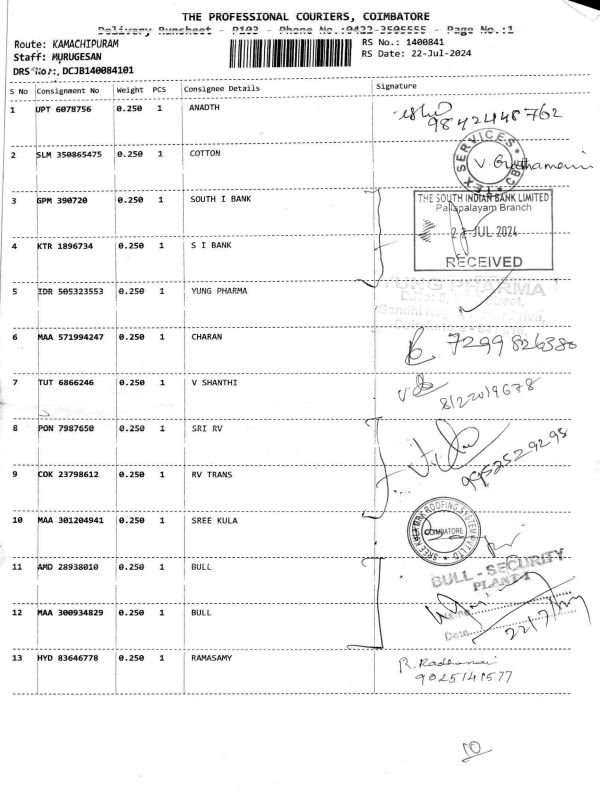 THE PROFESSIONAL COURIERS, COIMBATORE
Delivery Runsheet - P103 - Phone No.:0422-3505555 - Page No.:1
Route: KAMACHIPURAM
RS No.: 1400841
Staff: MURUGESAN
RS Date: 22-Jul-2024
DRS No:, DCJB140084101
S No Consignment No Weight PCS Consignee Details Signature
1 UPT 6078756 0.250 1 ANADTH
9842448762
2 SLM 350865475 0.250 1 COTTON
SERVICES
3 GPM 390720 0.250 1 SOUTH I BANK
THE SOUTH INDIAN BANK LIMITED
Palapalayam Branch
JUL 2024
4 KTR 1896734 0.250 1 S I BANK
RECEIVED
5 IDR 505323553 0.250 1 YUNG PHARMA
YUNG PHARMA
6 MAA 571994247 0.250 1 CHARAN
7299826380
7 TUT 6866246 0.250 1 V SHANTHI
8122019678
8 PON 7987650 0.250 1 SRI RV
9952529298
9 COK 23798612 0.250 1 RV TRANS
10 MAA 301204941 0.250 1 SREE KULA
ROOFING SYSTEM
COIMBATORE
11 AMD 28938010 0.250 1 BULL
BULL - SECURITY
PLANT 1
12 MAA 300934829 0.250 1 BULL
Name
Date 22/7/24
13 HYD 83646778 0.250 1 RAMASAMY
9025141577
10